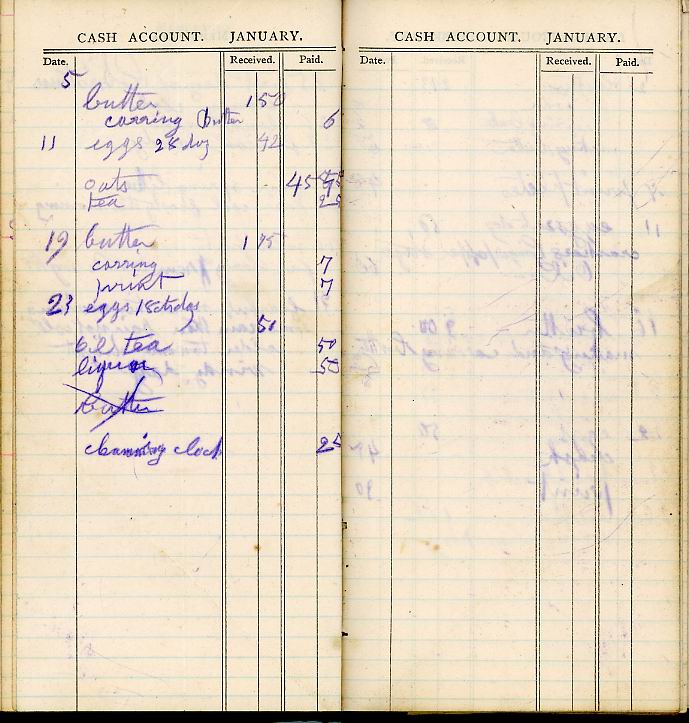 CASH ACCOUNT. JANUARY.
Date. Received. Paid.
5
butter 1 50
carring butter 6
11 eggs 28 doz 42
oats 45
tea 25
19 butter 1 75
carring 7
print 7
23 eggs 18cts doz
50
oil tea 50
liquor 50
butter
cleaning clock 25
CASH ACCOUNT. JANUARY.
Date. Received. Paid.